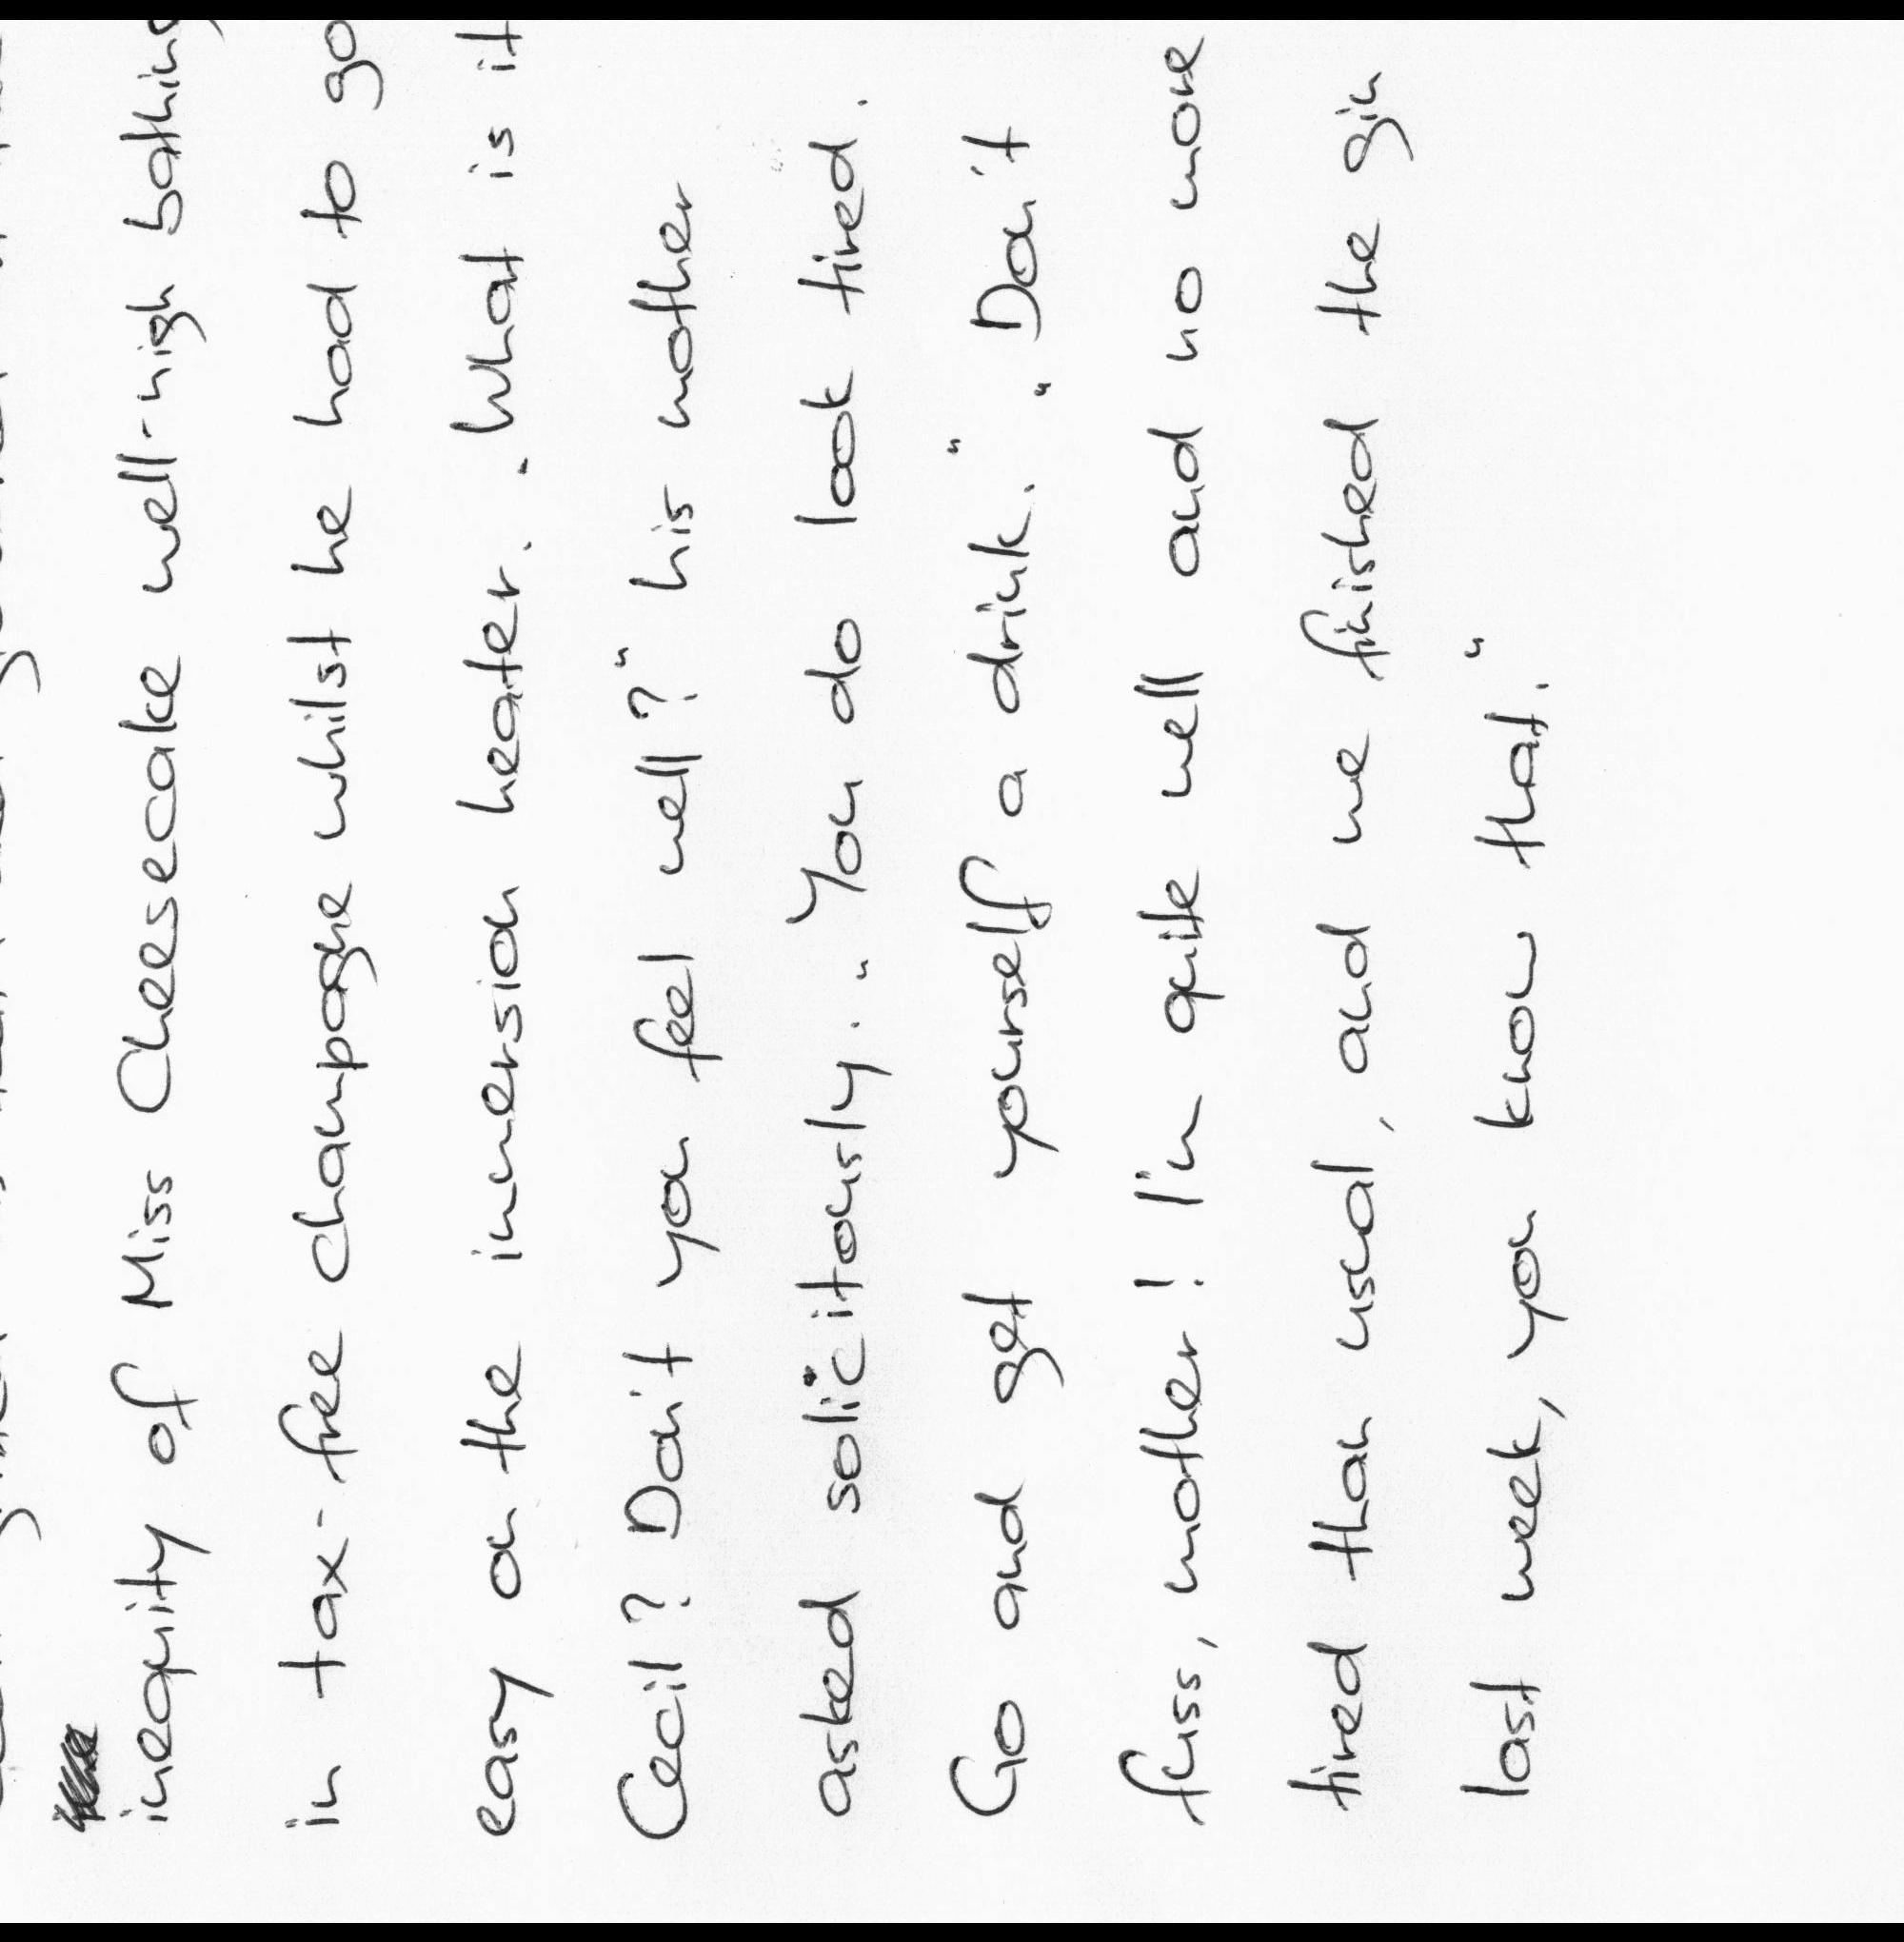 inequity of Miss Cheesecake well-nigh bathing
in tax-free champagne whilst he had to go
easy on the immersion heater. "What is it
Cecil? Don't you feel well?" his mother
asked solicitously. "You do look tired.
Go and get yourself a drink." "Don't
fuss, mother! I'm quite well and no more
tired than usual, and we finished the gin
last week, you know that."